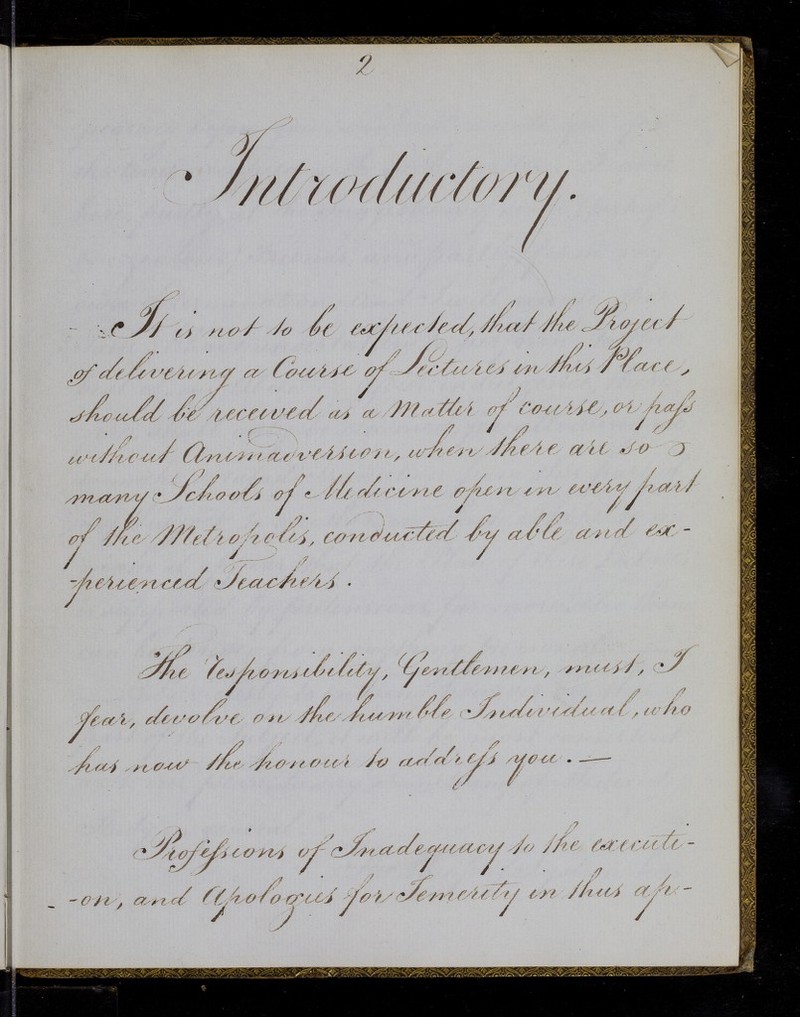 2
Introductory.
It is not to be expected, that the Project
of delivering a Course of Lectures in this Place,
should be received as a Matter of course, or pass
without Animadversion, when there are so
many Schools of Medicine open in every part
of the Metropolis, conducted by able and ex-
-perienced Teachers.
The Responsibility, Gentlemen, must, I
fear, devolve on the humble Individual, who
has now the honour to address you. —
Professions of Inadequacy to the executi-
-on, and Apologies for Temerity in thus ap-